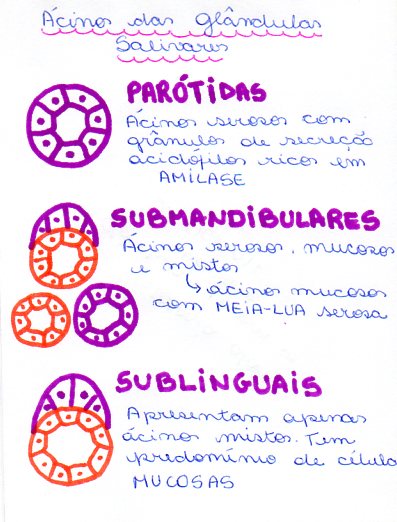 Ácinos das Glândulas
Salivares
PARÓTIDAS
Ácinos serosos com
grânulos de secreção
acidófilos ricos em
AMILASE
SUBMANDIBULARES
Ácinos serosos, mucosos
e mistos
↳ ácinos mucosos
com MEIA-LUA serosa
SUBLINGUAIS
Apresentam apenas
ácinos mistos. Tem
predomínio de célula
MUCOSAS